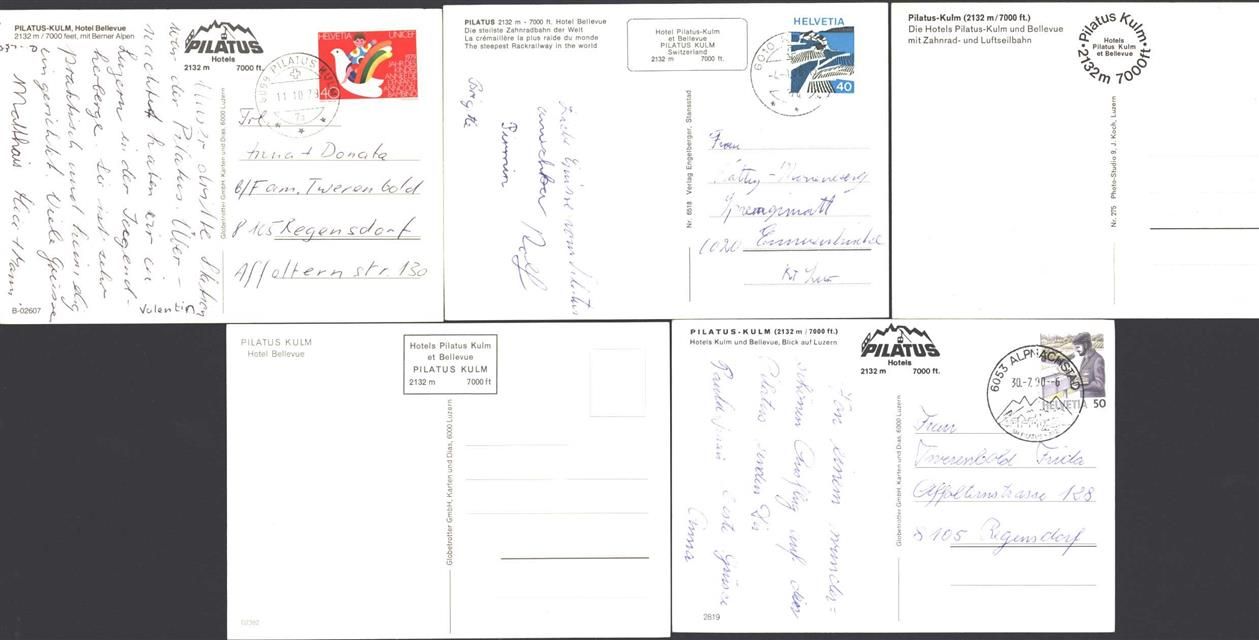 PILATUS-KULM, Hotel Bellevue
2132 m / 7000 feet, mit Berner Alpen
PILATUS
Hotels
2132 m 7000 ft.
HELVETIA UNICEF
40
6099 PILATUS KULM
11.10.79
Unser
Station
war der Pilatus. Über-
nachtet haben wir in
Luzern in der Jugend-
herberge. Sie ist sehr
praktisch und
eingerichtet. Viele Grüsse
Matthias
Valentin
B-02607
Globetrotter GmbH Karten und Dias, 6000 Luzern
Frl.
Anna + Donata
b/Fam. Twerenbold
8105 Regensdorf
Affolternstr. 130
PILATUS 2132 m - 7000 ft. Hotel Bellevue
Die steilste Zahnradbahn der Welt
La crémaillère la plus raide du monde
The steepest Rackrailway in the world
Hotel Pilatus-Kulm
et Bellevue
PILATUS KULM
Switzerland
2132 m 7000 ft.
HELVETIA
40
6010
Grüsse vom Pilatus
Rolf
Brigitte
Nr. 6518 Verlag Engelberger, Stansstad
Frau
6020 Emmenbrücke
Kt. Luz.
Pilatus-Kulm (2132 m / 7000 ft.)
Die Hotels Pilatus-Kulm und Bellevue
mit Zahnrad- und Luftseilbahn
Pilatus Kulm
Hotels
Pilatus Kulm
et Bellevue
2132m 7000ft
Nr. 275 Photo-Studio 9, J. Koch, Luzern
PILATUS KULM
Hotel Bellevue
Hotels Pilatus Kulm
et Bellevue
PILATUS KULM
2132 m 7000 ft
Globetrotter GmbH, Karten und Dias, 6000 Luzern
02392
PILATUS-KULM (2132 m / 7000 ft.)
Hotels Kulm und Bellevue, Blick auf Luzern
PILATUS
Hotels
2132 m 7000 ft.
6053 ALPNACHSTAD
30.-7.90.-6
HELVETIA 50
Von einem wunder-
schönen Ausflug auf den
Pilatus senden Dir
beste Grüsse
Anna
Globetrotter GmbH, Karten und Dias, 6000 Luzern
Frau
Twerenbold Frida
Affolternstrasse 128
8105 Regensdorf
2819